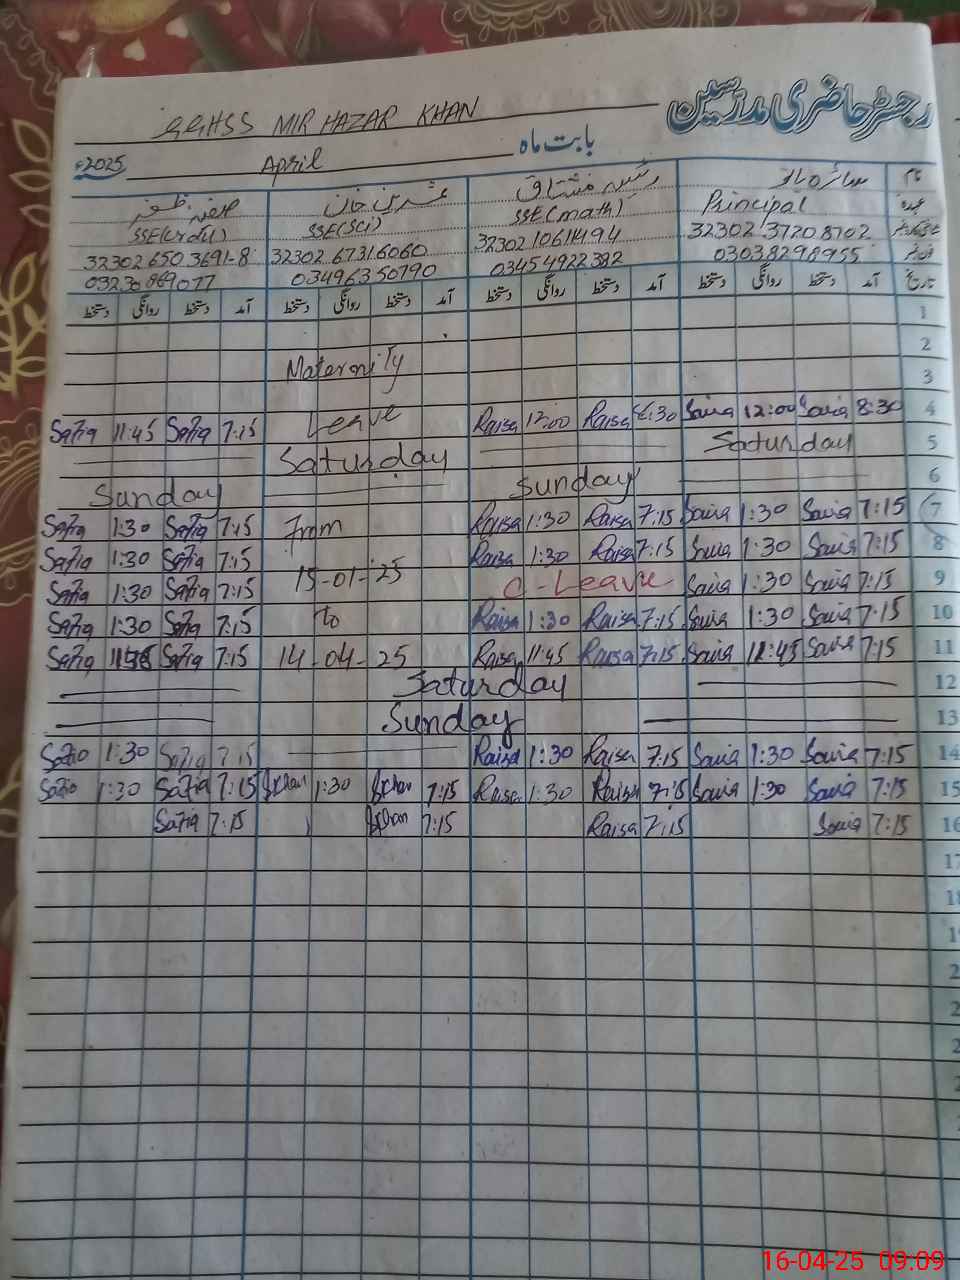 رجسٹر حاضری مدرسین
GGHSS MIR HAZAR KHAN
بابت ماہ April 2025ء
نام سائرہ بانو عشرین خان صفیہ ظفر
عہدہ Principal SSE(math) SSE(Sci) SSE(Urdu)
32302 37208702 32302 10611494 32302 67316060 32302 650 3691-8
فون نمبر 03038298955 03454922382 03496350790
تاریخ آمد دستخط روانگی دستخط آمد دستخط روانگی دستخط آمد دستخط روانگی دستخط آمد دستخط روانگی دستخط
1
2
Maternity
3
Safia 11:45 Safia 7:15 Leave Raisa 12:00 Raisa 8:30 Saira 12:00 Saira 8:30 4
Saturday Saturday 5
Sunday Sunday 6
Safia 1:30 Safia 7:15 From Raisa 1:30 Raisa 7:15 Saira 1:30 Saira 7:15 7
Safia 1:30 Safia 7:15 Raisa 1:30 Raisa 7:15 Saira 1:30 Saira 7:15 8
Safia 1:30 Safia 7:15 15-01-25 C-Leave Saira 1:30 Saira 7:15 9
Safia 1:30 Safia 7:15 to Raisa 1:30 Raisa 7:15 Saira 1:30 Saira 7:15 10
Safia Safia 7:15 14-04-25 Raisa 11:45 Raisa 7:15 Saira 11:45 Saira 7:15 11
Saturday 12
Sunday 13
Safia 1:30 Safia 7:15 Raisa 1:30 Raisa 7:15 Saira 1:30 Saira 7:15 14
Safia 1:30 Safia 7:15 Ikhan 1:30 Ikhan 7:15 Raisa 1:30 Raisa 7:15 Saira 1:30 Saira 7:15 15
Safia 7:15 Ikhan 7:15 Raisa 7:15 Saira 7:15 16
17
18
16-04-25 09:09